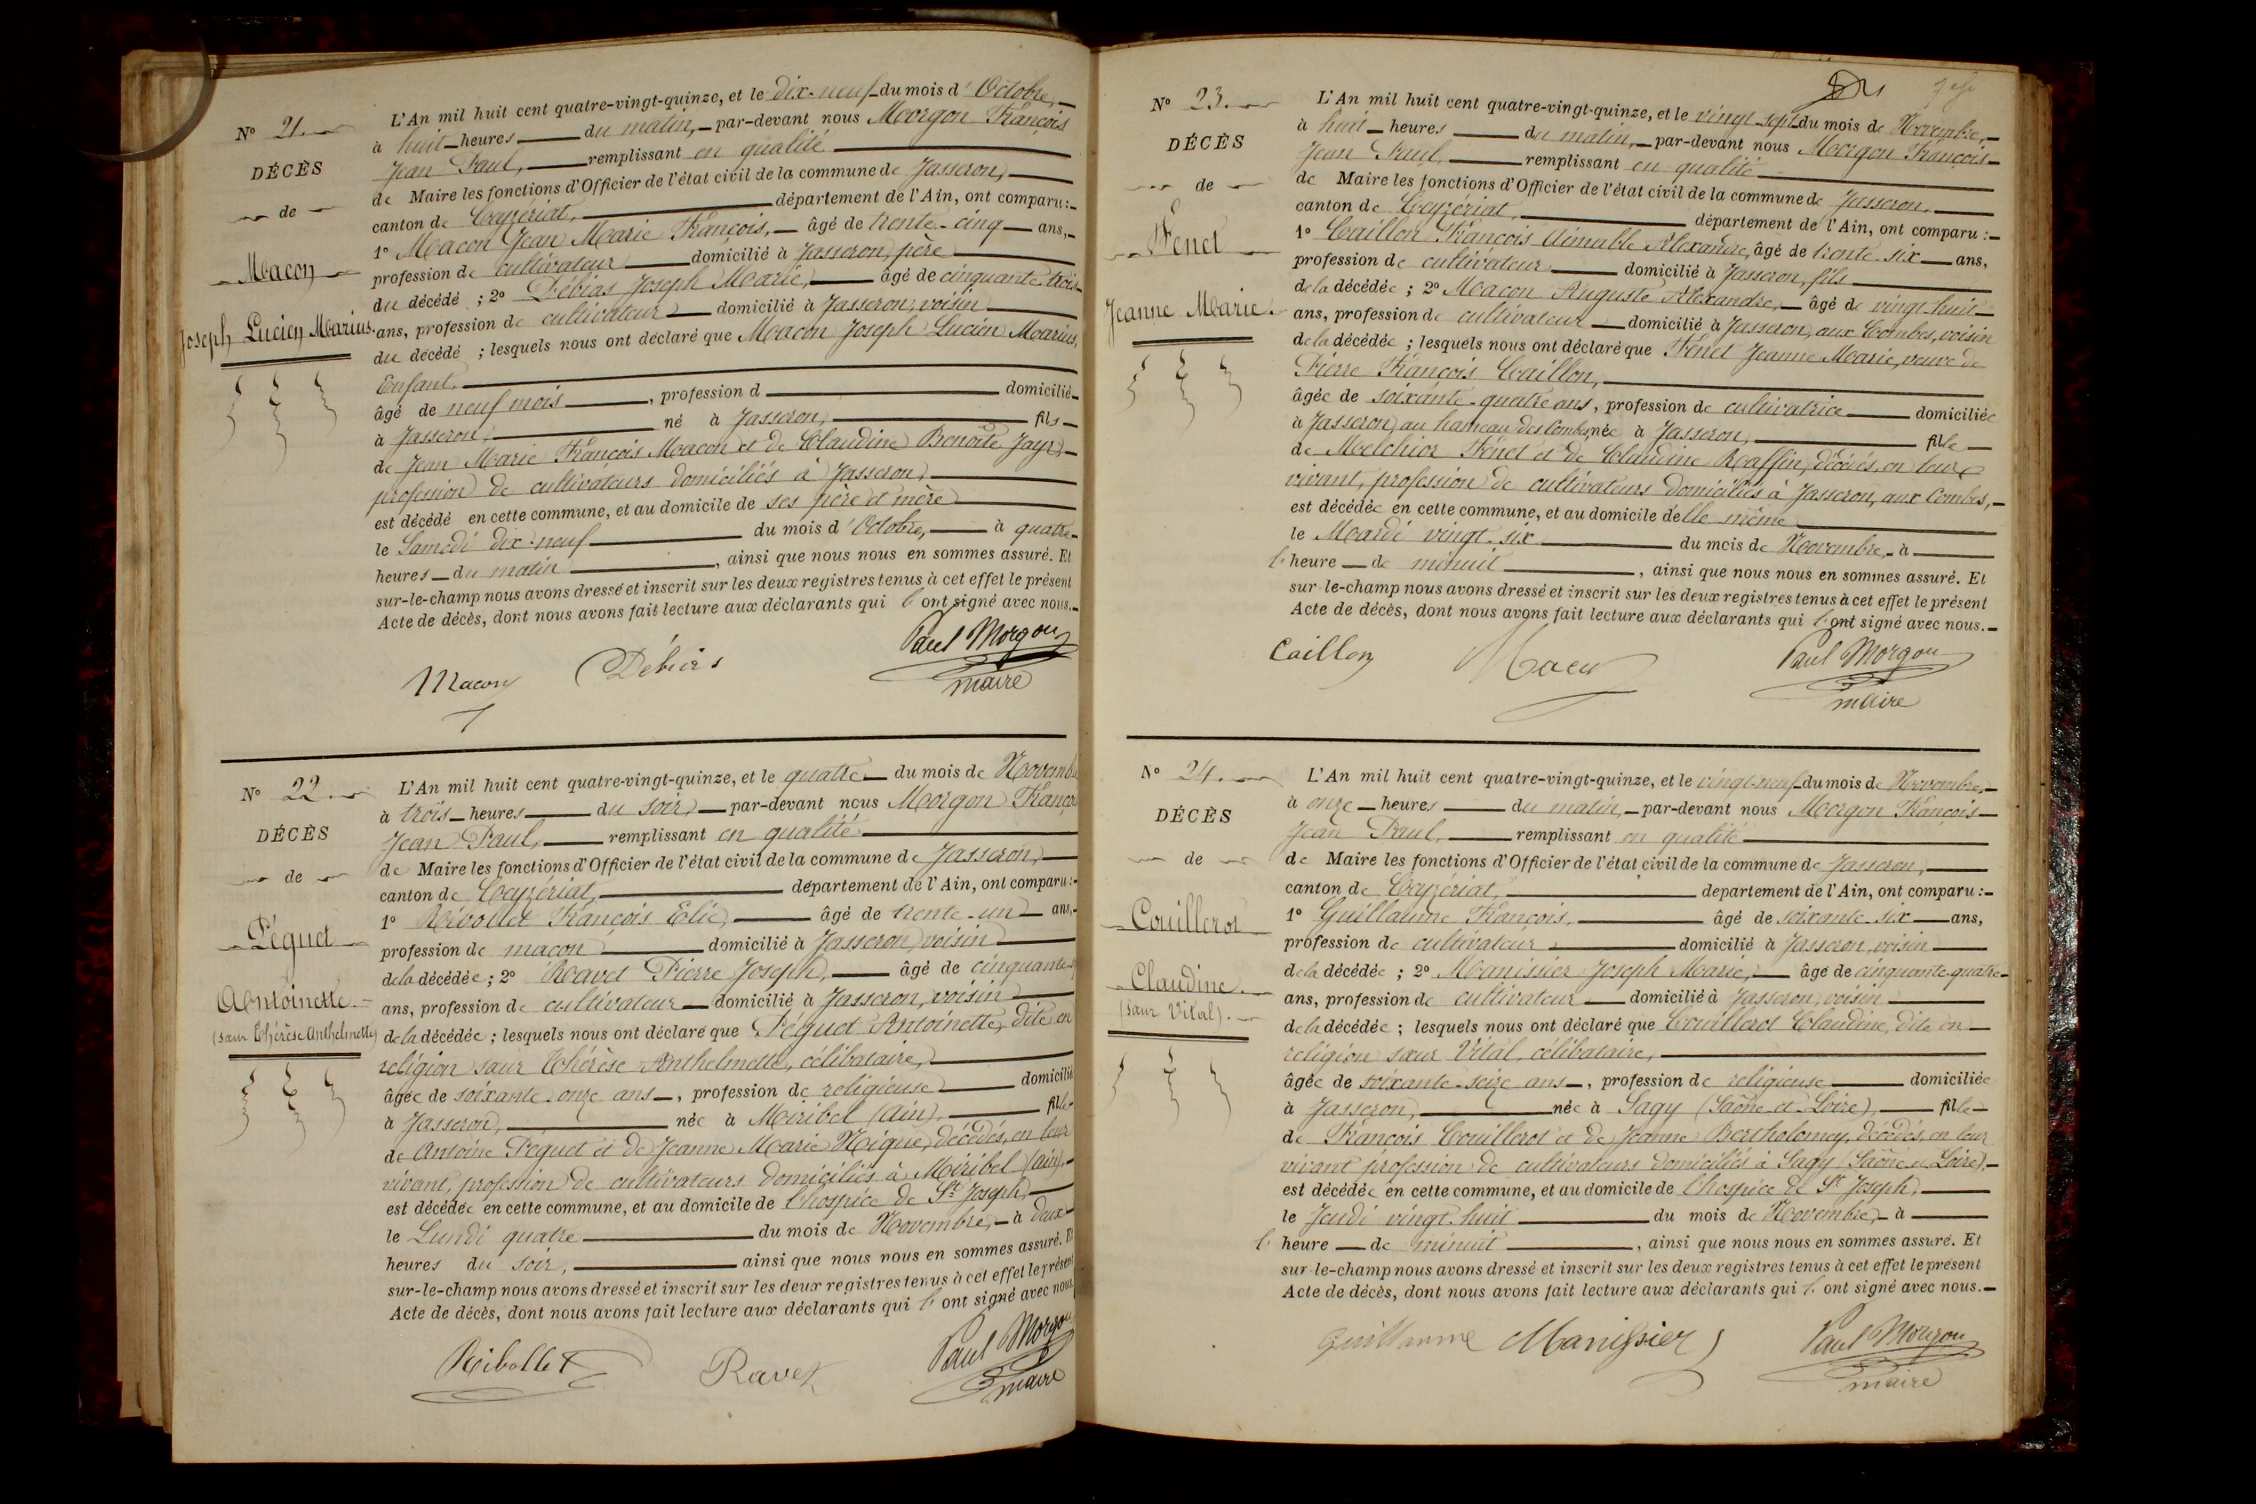 Nº 21.
DÉCÈS
de
Macon
Joseph Lucien Marius.
L'An mil huit cent quatre-vingt-quinze, et le dix-neuf du mois d'Octobre,
à huit heures du matin, par-devant nous Morgon François
Jean Paul, remplissant en qualité
de Maire les fonctions d'Officier de l'état civil de la commune de Jasseron,
canton de Ceyzériat, département de l'Ain, ont comparu :
1º Macon Jean Marie François, âgé de trente-cinq ans,
profession de cultivateur domicilié à Jasseron, père
du décédé ; 2º Débias Joseph Marie, âgé de cinquante-trois
ans, profession de cultivateur domicilié à Jasseron, voisin
du décédé ; lesquels nous ont déclaré que Macon Joseph Lucien Marius,
Enfant,
âgé de neuf mois, profession d domicilié
à Jasseron, né à Jasseron, fils
de Jean Marie François Macon et de Claudine Benoîte Jayr,
profession de cultivateurs domiciliés à Jasseron,
est décédé en cette commune, et au domicile de ses père et mère
le Samedi dix-neuf du mois d'Octobre, à quatre
heures du matin, ainsi que nous nous en sommes assuré. Et
sur-le-champ nous avons dressé et inscrit sur les deux registres tenus à cet effet le présent
Acte de décès, dont nous avons fait lecture aux déclarants qui l'ont signé avec nous.
Macon Débias Paul Morgon
maire
Nº 22.
DÉCÈS
de
Péquet
Antoinette
(sœur Thérèse Anthelmette)
L'An mil huit cent quatre-vingt-quinze, et le quatre du mois de Novembre
à trois heures du soir, par-devant nous Morgon François
Jean Paul, remplissant en qualité
de Maire les fonctions d'Officier de l'état civil de la commune de Jasseron,
canton de Ceyzériat, département de l'Ain, ont comparu :
1º Ribollet François Elie, âgé de trente-un ans,
profession de maçon domicilié à Jasseron, voisin
de la décédée ; 2º Ravet Pierre Joseph, âgé de cinquante
ans, profession de cultivateur domicilié à Jasseron, voisin
de la décédée ; lesquels nous ont déclaré que Péquet Antoinette, dite en
religion sœur Thérèse Anthelmette, célibataire,
âgée de soixante-onze ans, profession de religieuse domicilié
à Jasseron, née à Miribel (Ain), fille
de Antoine Péquet et de Jeanne Marie Nique, décédés, en leur
vivant, profession de cultivateurs domiciliés à Miribel (Ain),
est décédée en cette commune, et au domicile de l'hospice de St Joseph,
le Lundi quatre du mois de Novembre, à deux
heures du soir, ainsi que nous nous en sommes assuré. Et
sur-le-champ nous avons dressé et inscrit sur les deux registres tenus à cet effet le présent
Acte de décès, dont nous avons fait lecture aux déclarants qui l'ont signé avec nous.
Ribollet Ravet Paul Morgon
maire
Nº 23.
DÉCÈS
de
Fénet
Jeanne Marie.
L'An mil huit cent quatre-vingt-quinze, et le vingt-sept du mois de Novembre,
à huit heures du matin, par-devant nous Morgon François
Jean Paul, remplissant en qualité
de Maire les fonctions d'Officier de l'état civil de la commune de Jasseron,
canton de Ceyzériat, département de l'Ain, ont comparu :
1º Caillon François Aimable Alexandre, âgé de trente-six ans,
profession de cultivateur domicilié à Jasseron, fils
de la décédée ; 2º Macon Auguste Alexandre, âgé de vingt-huit
ans, profession de cultivateur domicilié à Jasseron, aux Combes, voisin
de la décédée ; lesquels nous ont déclaré que Fénet Jeanne Marie, veuve de
Pierre François Caillon,
âgée de soixante-quatre ans, profession de cultivatrice domiciliée
à Jasseron, au hameau des Combes, née à Jasseron, fille
de Melchior Fénet et de Claudine Raffin, décédés, en leur
vivant, profession de cultivateurs domiciliés à Jasseron, aux Combes,
est décédée en cette commune, et au domicile d'elle même
le Mardi vingt-six du mois de Novembre, à
l'heure de minuit, ainsi que nous nous en sommes assuré. Et
sur-le-champ nous avons dressé et inscrit sur les deux registres tenus à cet effet le présent
Acte de décès, dont nous avons fait lecture aux déclarants qui l'ont signé avec nous.
Caillon Macon Paul Morgon
maire
Nº 24.
DÉCÈS
de
Couillerot
Claudine
(sœur Vital).
L'An mil huit cent quatre-vingt-quinze, et le vingt-neuf du mois de Novembre,
à onze heures du matin, par-devant nous Morgon François
Jean Paul, remplissant en qualité
de Maire les fonctions d'Officier de l'état civil de la commune de Jasseron,
canton de Ceyzériat, departement de l'Ain, ont comparu :
1º Guillaume François, âgé de soixante-six ans,
profession de cultivateur domicilié à Jasseron, voisin
de la décédée ; 2º Manissier Joseph Marie, âgé de cinquante-quatre
ans, profession de cultivateur domicilié à Jasseron, voisin
de la décédée ; lesquels nous ont déclaré que Couillerot Claudine, dite en
religion sœur Vital, célibataire,
âgée de soixante-seize ans, profession de religieuse domiciliée
à Jasseron, née à Sagy (Saône et Loire), fille
de François Couillerot et de Jeanne Bertholomey, décédés, en leur
vivant profession de cultivateurs domiciliés à Sagy (Saône et Loire),
est décédée en cette commune, et au domicile de l'hospice de St Joseph,
le Jeudi vingt-huit du mois de Novembre, à
l'heure de minuit, ainsi que nous nous en sommes assuré. Et
sur-le-champ nous avons dressé et inscrit sur les deux registres tenus à cet effet le présent
Acte de décès, dont nous avons fait lecture aux déclarants qui l'ont signé avec nous.
Guillaume Manissier Paul Morgon
maire